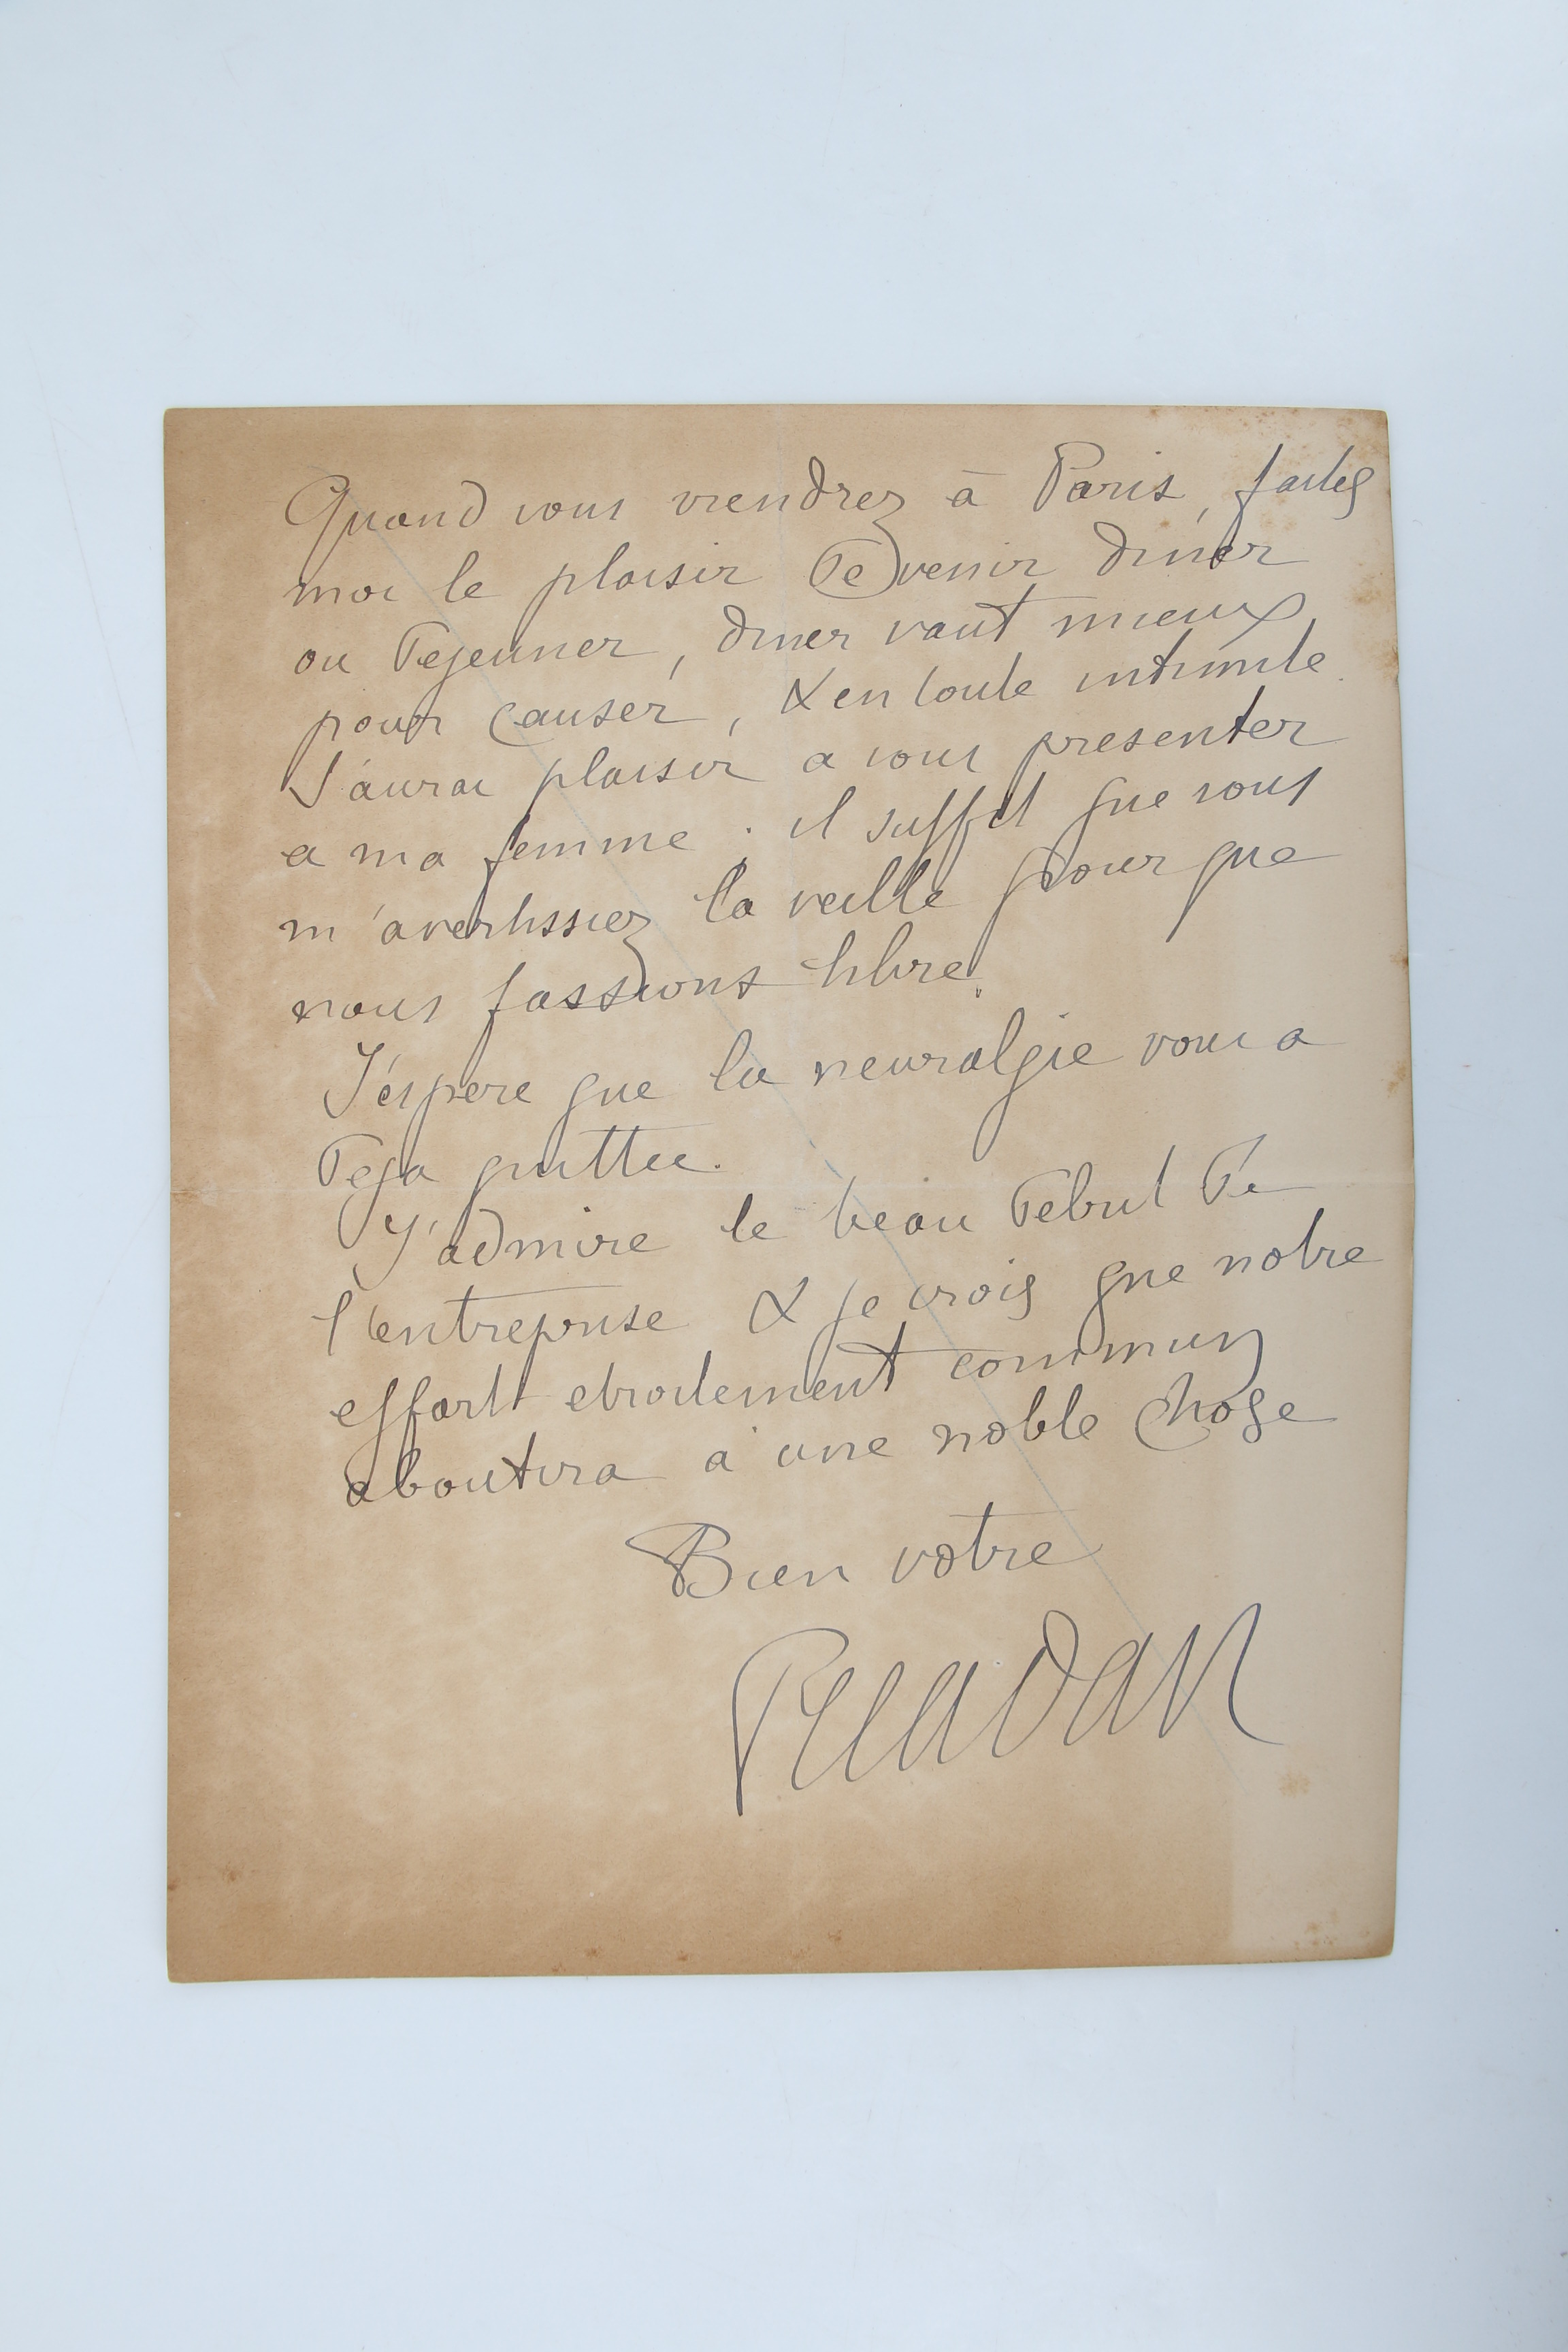 Quand vous viendrez à Paris, faites
moi le plaisir de venir diner
ou dejeuner, diner vaut mieux
pour causer, & en toute intimite.
J'aurai plaisir a vous presenter
a ma femme : il suffit que vous
m'avertissiez la veille pour que
nous fassions libre.
J'espere que la neuralgie vous a
deja quittee.
J'admire le beau debut de
l'entreprise & je crois que notre
effort etroitement commun
aboutira a une noble chose
Bien votre
Peladan